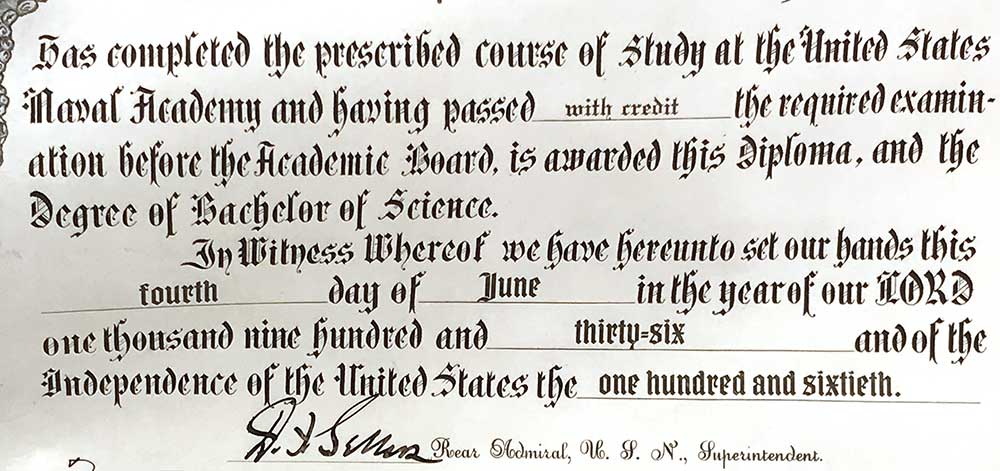 Has completed the prescribed course of Study at the United States
Naval Academy and having passed with credit the required examin-
ation before the Academic Board, is awarded this Diploma, and the
Degree of Bachelor of Science.
In Witness Whereof we have hereunto set our hands this
fourth day of June in the year of our LORD
one thousand nine hundred and thirty=six and of the
Independence of the United States the one hundred and sixtieth.
D. F. Sellers Rear Admiral, U. S. N., Superintendent.